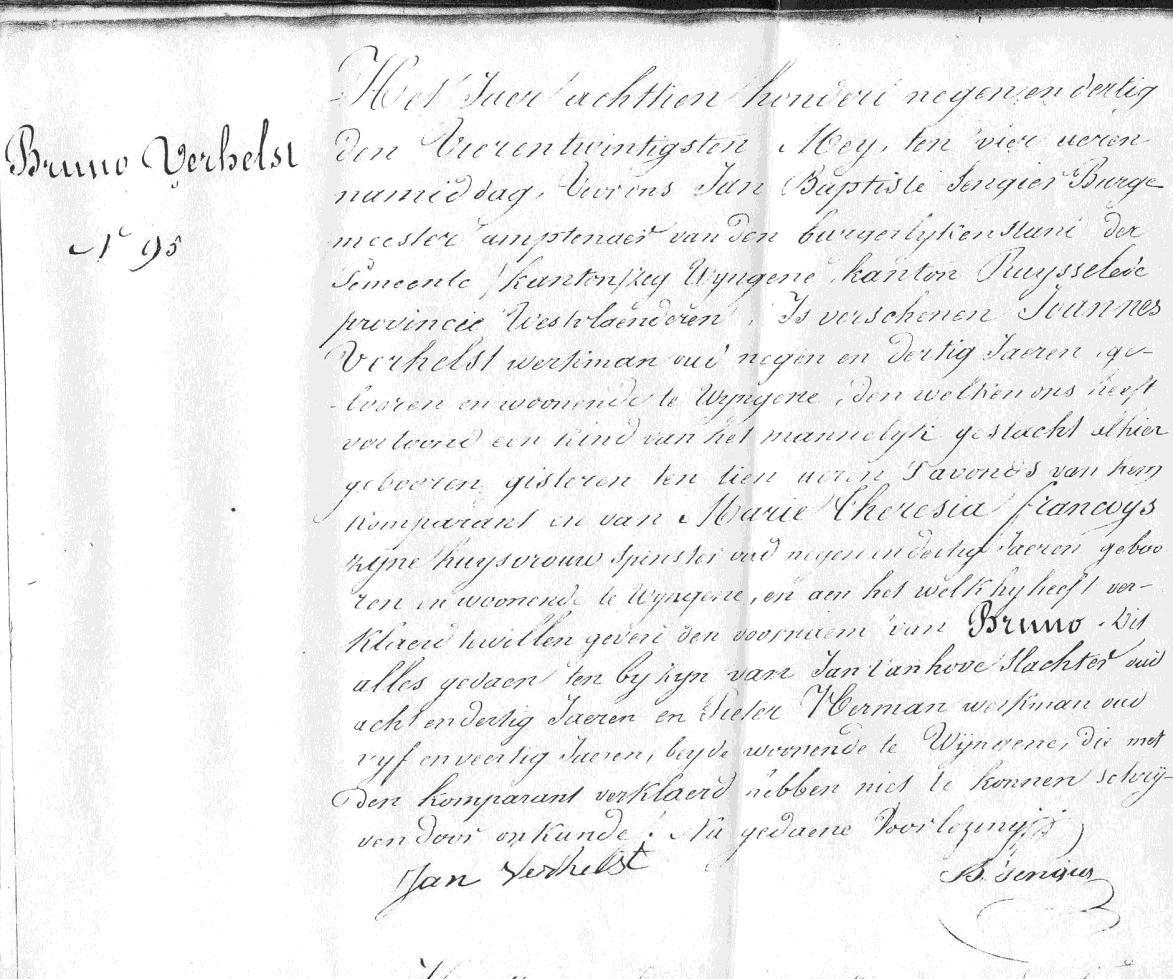 Bruno Verhelst
N° 95
Het Jaer achttien honderd negen en dertig
den Vierentwintigsten Mey, ten vier ueren
namiddag, Voorens Jan Baptiste Sengier Burge
meester amptenaer van den burgerlyken stand der
Gemeente Wyngene, kanton Ruysselede
provincie Westvlaenderen, Is verschenen Joannes
Verhelst werkman oud negen en dertig Jaeren, ge-
-booren en woonende te Wyngene, den welken ons heeft
vertoond een kind van het mannelyk geslacht alhier
gebooren gisteren ten tien ueren s'avonds van hem
komparant en van Marie Theresia francoys
zyne huysvrouw spinster oud negen en dertig Jaeren geboo
ren en woonende te Wyngene, en aen het welk hy heeft ver-
klaerd te willen geven den voornaem van Bruno. Dit
alles gedaen ten by zyn van Jan Vanhove Slachter oud
acht en dertig Jaeren en Pieter Herman werkman oud
vyf en veertig Jaeren, beyde woonende te Wyngene, die met
den komparant verklaerd hebben niet te konnen schry-
ven door onkunde. Na gedaene Voorlezing
Jan Verhelst
B. Sengier